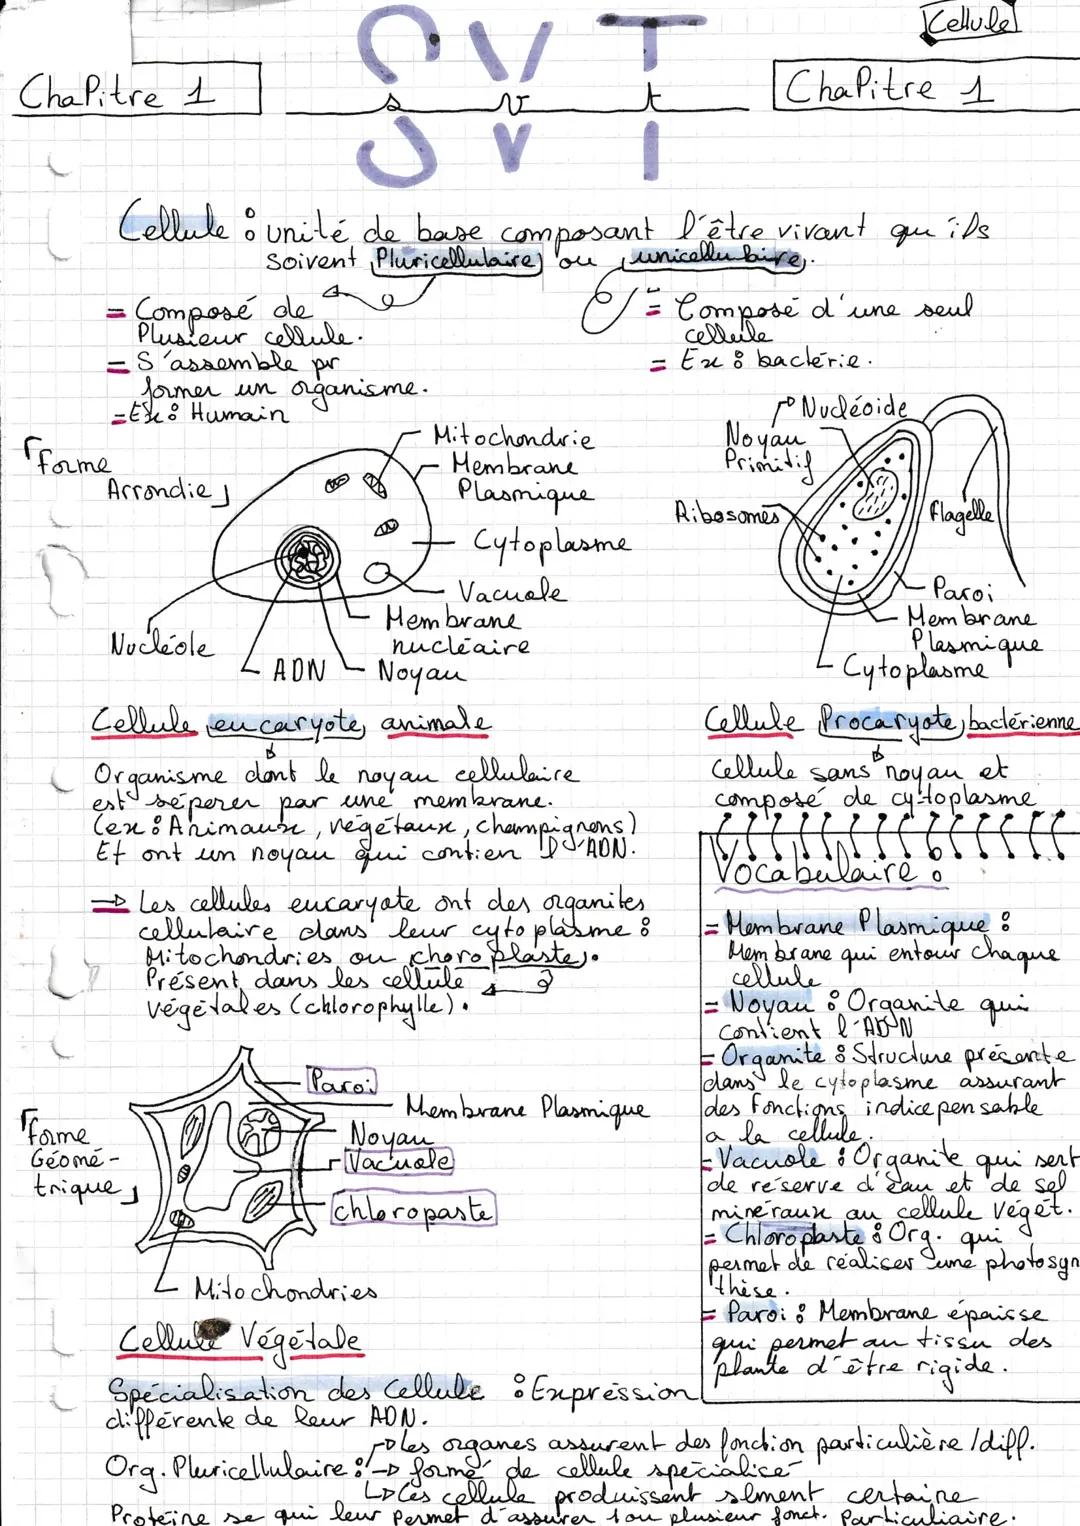 Cellule
SVT
ChaPitre 1
s v t
ChaPitre 1
Cellule : unité de base composant l'être vivant qu'ils
soivent Pluricellulaire ou unicellulaire.
= Composé de
Plusieur cellule.
= S'assemble pr
former un organisme.
= Ex : Humain
= Composé d'une seul
cellule
= Ex : bactérie.
Forme
Arrondie
Mitochondrie
Membrane
Plasmique
Cytoplasme
Vacuole
Membrane
nucléaire
Noyau
ADN
Nucléole
Nucléoide
Noyau
Primitif
Ribosomes
Flagelle
Paroi
Membrane
Plasmique
Cytoplasme
Cellule eucaryote animale
Organisme dont le noyau cellulaire
est séperer par une membrane.
(ex : Animaux, végétaux, champignons)
Et ont un noyau qui contien l'ADN.
→ Les cellules eucaryote ont des organites
cellulaire dans leur cytoplasme :
Mitochondries ou choroplaste.
Présent dans les cellule
végétales (chlorophylle).
Cellule Procaryote bactérienne
Cellule sans noyau et
composé de cytoplasme
Vocabulaire :
= Membrane Plasmique :
Membrane qui entour chaque
cellule
= Noyau : Organite qui
contient l'ADN
= Organite : Structure présente
dans le cytoplasme assurant
des fonctions indicepensable
a la cellule.
= Vacuole : Organite qui sert
de réserve d'eau et de sel
minéraux au cellule végét.
= Chloroplaste : Org. qui
permet de réaliser une photosyn
thèse.
= Paroi : Membrane épaisse
qui permet au tissu des
plante d'être rigide.
Forme
Géomé-
trique
Paroi
Membrane Plasmique
Noyau
Vacuole
chloropaste
Mitochondries
Cellule Végétale
Spécialisation des Cellule : Expréssion
différente de leur ADN.
→ les organes assurent des fonction particulière/diff.
Org. Pluricellulaire : → formé de cellule spécialisé
↳ Ces cellule produissent slment certaine
Protéine se qui leur permet d'assurer 1 ou plusieur fonct. Particuliaire.